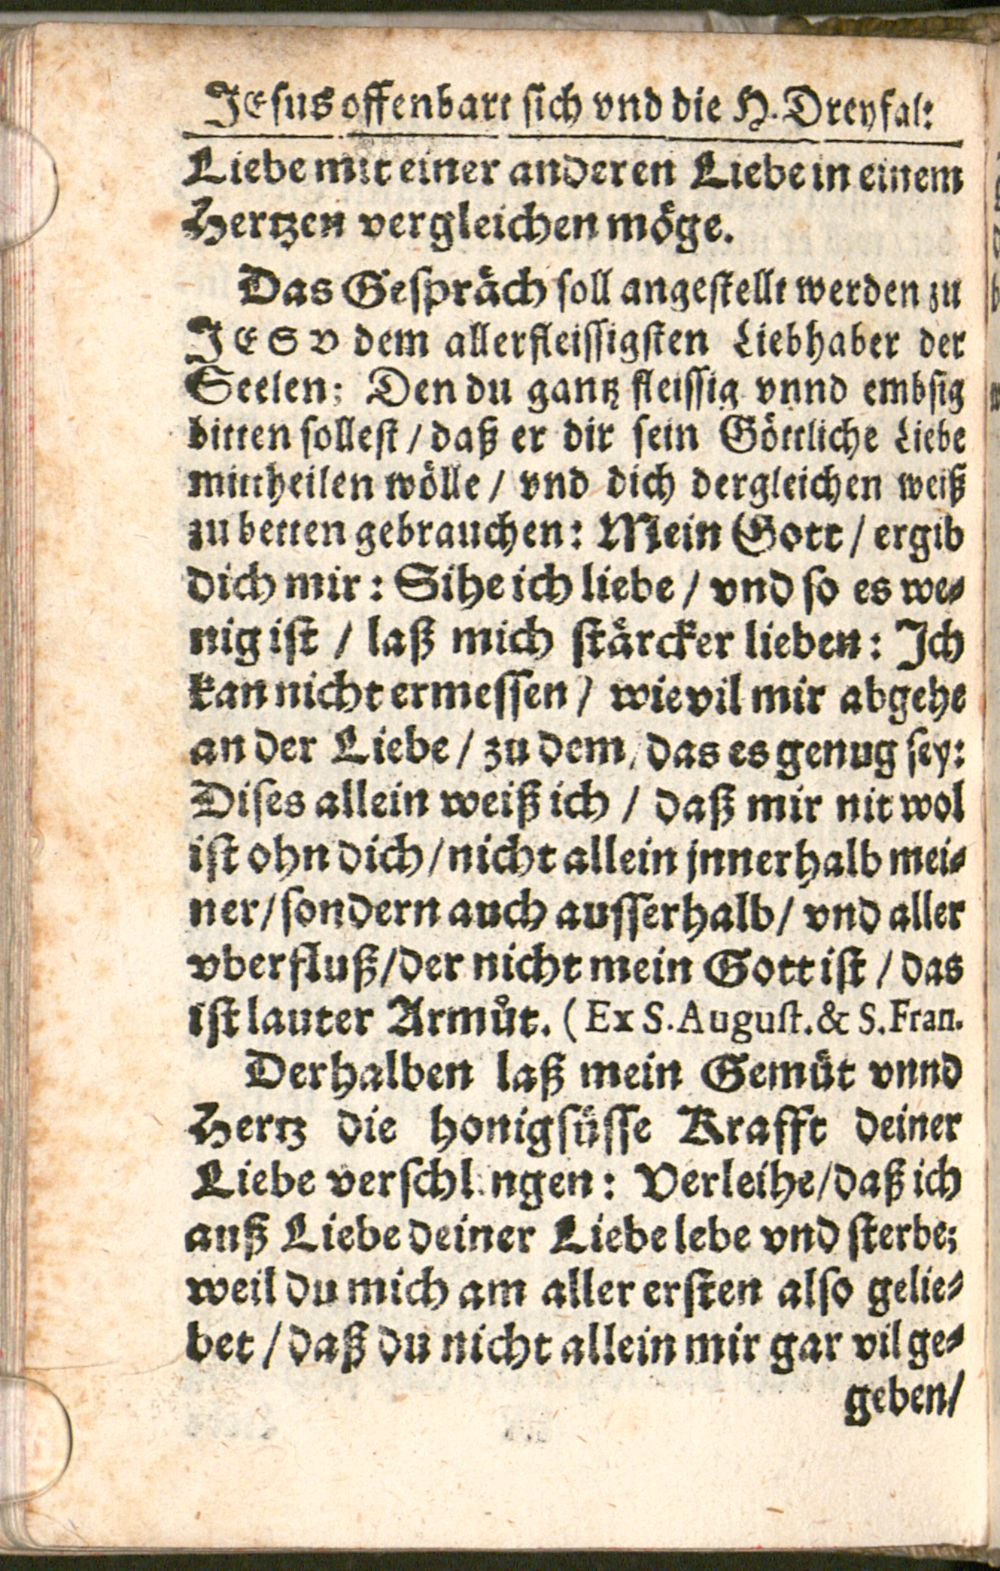 JEsus offenbart sich vnd die H. Dreyfalt
Liebe mit einer anderen Liebe in einem
Hertzen vergleichen möge.
Das Gespräch soll angestellt werden zu
JESV dem allerfleissigsten Liebhaber der
Seelen: Den du gantz fleissig vnnd embsig
bitten sollest / daß er dir sein Göttliche Liebe
mittheilen wölle / vnd dich dergleichen weiß
zu betten gebrauchen: Mein Gott / ergib
dich mir: Sihe ich liebe / vnd so es we-
nig ist / laß mich stärcker lieben: Ich
kan nicht ermessen / wie vil mir abgehe
an der Liebe / zu dem / das es genug sey:
Dises allein weiß ich / daß mir nit wol
ist ohn dich / nicht allein jnnerhalb mei-
ner / sondern auch ausserhalb / vnd aller
vberfluß / der nicht mein Gott ist / das
ist lauter Armůt. (Ex S. August. & S. Fran.
Derhalben laß mein Gemüt vnnd
Hertz die honigsüsse Krafft deiner
Liebe verschlingen: Verleihe / daß ich
auß Liebe deiner Liebe lebe vnd sterbe;
weil du mich am aller ersten also gelie-
bet / daß du nicht allein mir gar vil ge-
geben /